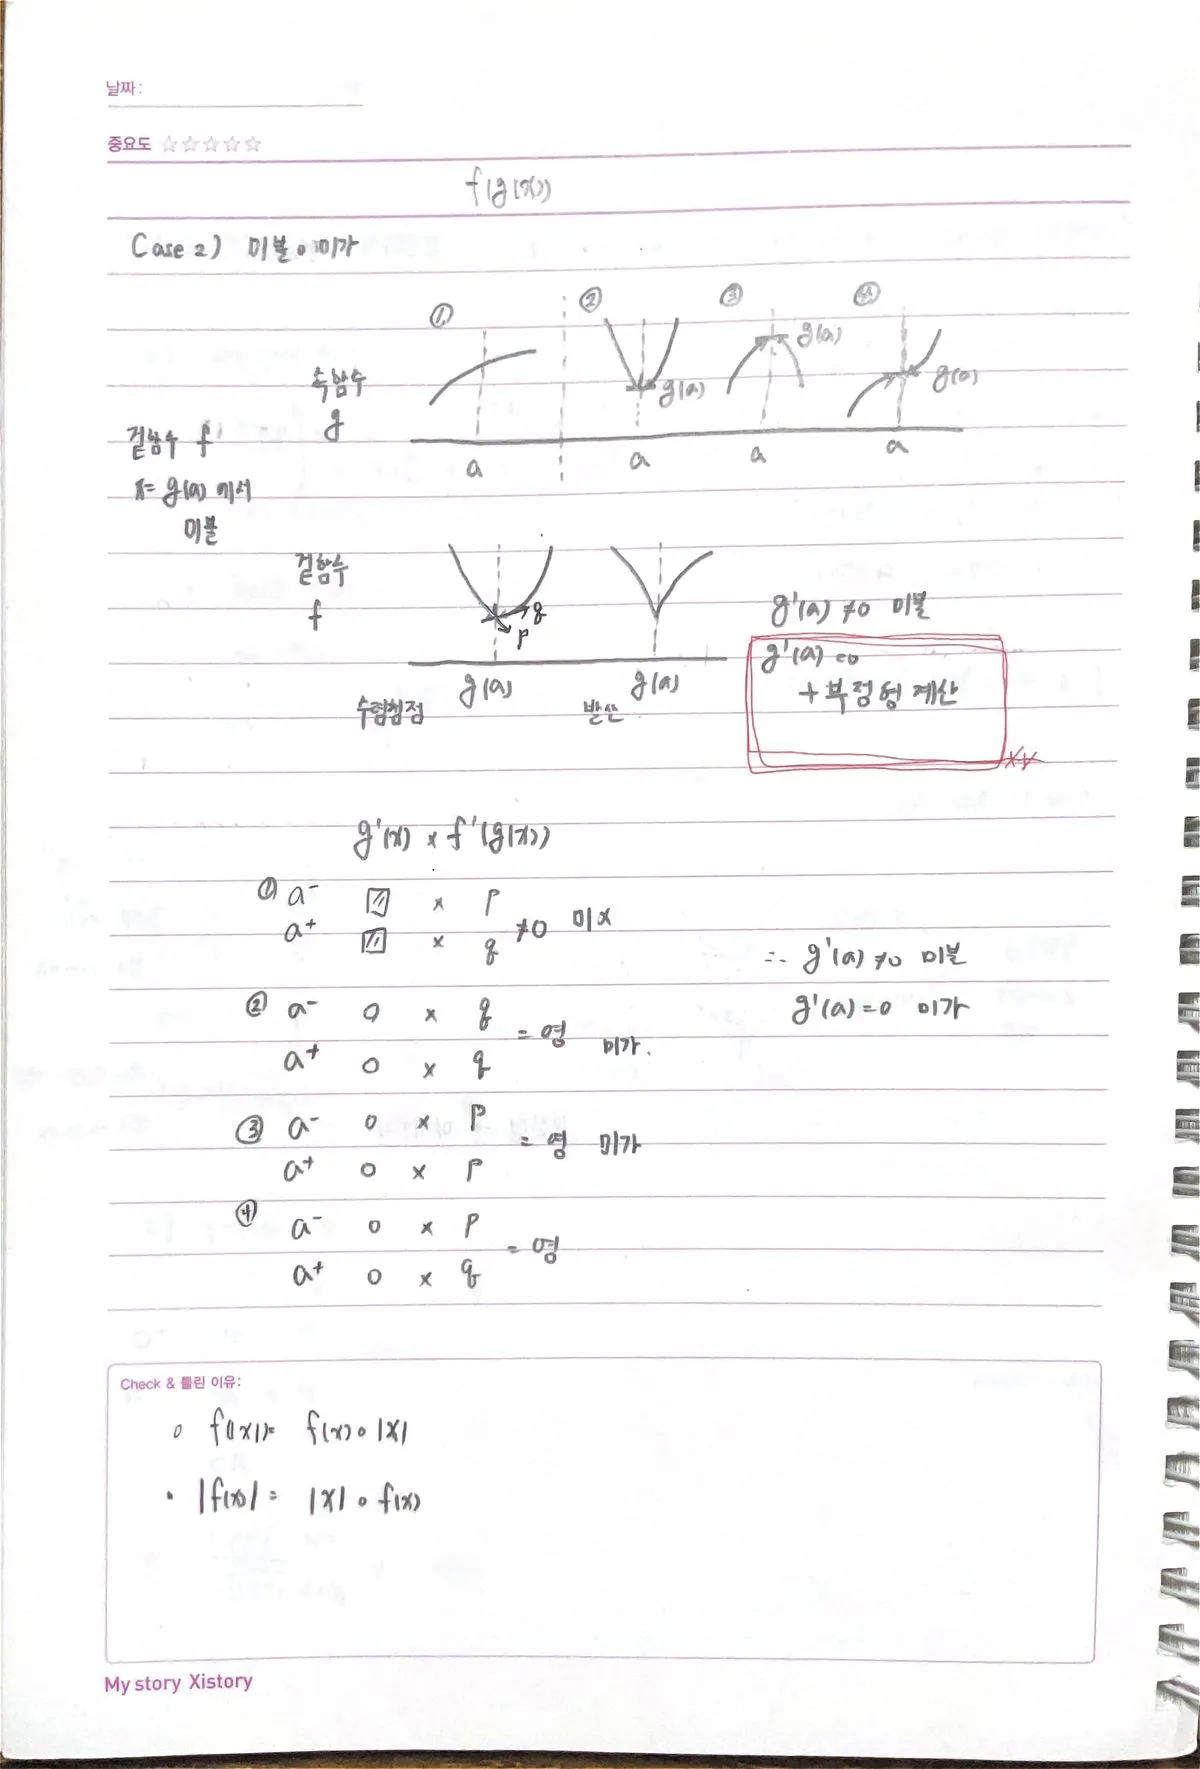 날짜:
중요도 ☆☆☆☆☆
f(g(x))
Case 2) 미불 ∘ 미가
① ② ③ ④
속함수
g
g(a) g(a) g(a)
a a a a
겉함수 f
x= g(a) 에서
미불
겉함수
f
q
p
g(a) g(a)
수렴첨점 발산
g'(a) ≠0 미불
g'(a) =0
+ 부정형 계산
g'(x) × f'(g(x))
① a⁻ × p
a⁺ × q ≠0 미x
② a⁻ 0 × q
a⁺ 0 × q = 영 미가.
③ a⁻ 0 × p
a⁺ 0 × p = 영 미가
④ a⁻ 0 × p
a⁺ 0 × q = 영
∴ g'(a) ≠0 미불
g'(a)=0 미가
Check & 틀린 이유:
∘ f(|x|)= f(x)∘|x|
• |f(x)| = |x|∘f(x)
My story Xistory